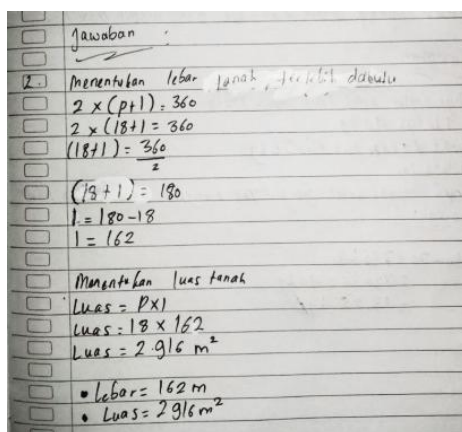 Jawaban :
2. Menentukan lebar tanah terlebih dahulu
2 x (p+l) = 360
2 x (18+l = 360
(18+l) = 360
2
(18+l) = 180
l = 180-18
l = 162
Menentukan luas tanah
Luas = Pxl
Luas = 18 x 162
Luas = 2.916 m²
• Lebar = 162 m
• Luas = 2916 m²